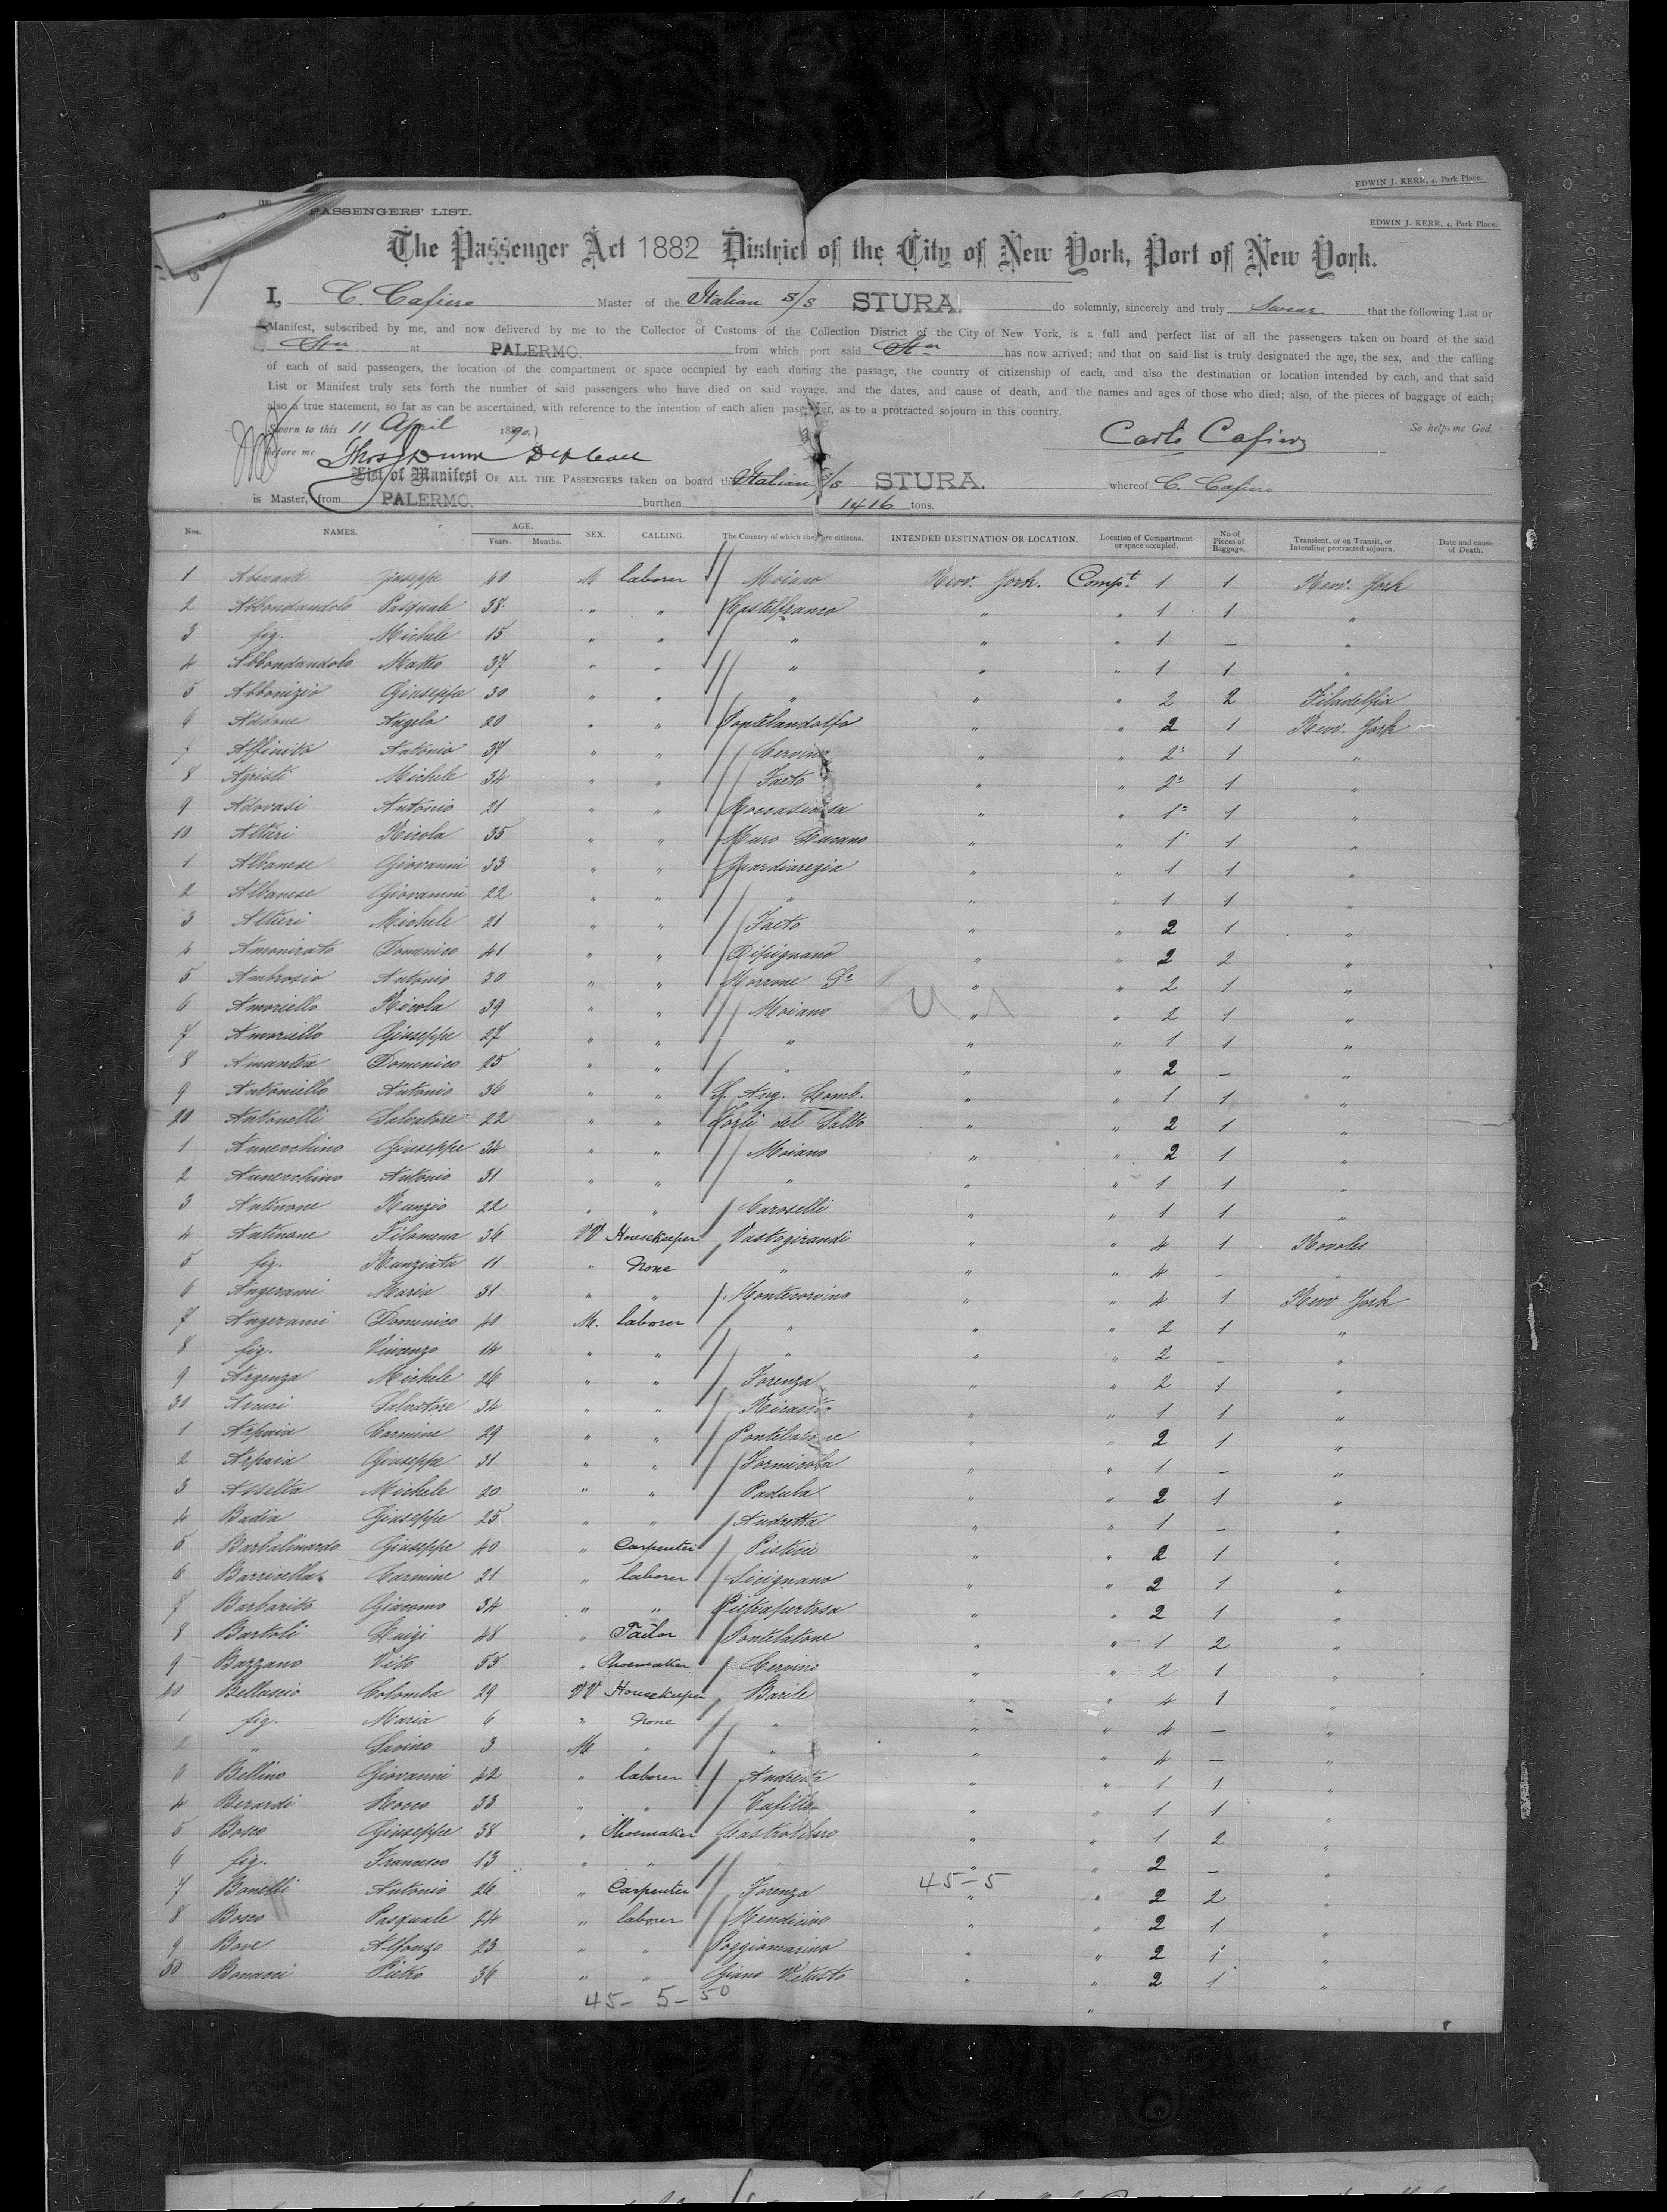 EDWIN J. KERR, 4, Park Place.
PASSENGERS' LIST.
EDWIN J. KERR, 4, Park Place.
The Passenger Act 1882 District of the City of New York, Port of New York.
I, C. Cafiero Master of the Italian S/S STURA. do solemnly, sincerely and truly Swear that the following List or
Manifest, subscribed by me, and now delivered by me to the Collector of Customs of the Collection District of the City of New York, is a full and perfect list of all the passengers taken on board of the said
Str at PALERMO. from which port said Str has now arrived; and that on said list is truly designated the age, the sex, and the calling
of each of said passengers, the location of the compartment or space occupied by each during the passage, the country of citizenship of each, and also the destination or location intended by each, and that said
List or Manifest truly sets forth the number of said passengers who have died on said voyage, and the dates, and cause of death, and the names and ages of those who died; also, of the pieces of baggage of each;
also a true statement, so far as can be ascertained, with reference to the intention of each alien passenger, as to a protracted sojourn in this country.
Sworn to this 11 April 1890 So help me God.
before me Thos J Dunn Dep Coll Carlo Cafiero
List of Manifest OF ALL THE PASSENGERS taken on board the Italian S/S STURA. whereof C. Cafiero
is Master, from PALERMO. burthen 1416 tons.
Nos. NAMES. AGE. Years. Months. SEX. CALLING. The Country of which they are citizens. INTENDED DESTINATION OR LOCATION. Location of Compartment or space occupied. No of Pieces of Baggage. Transient, or on Transit, or Intending protracted sojourn. Date and cause of Death.
1 Giuseppe 40 M laborer Moiano New. York. Compt 1 1 New. York
2 Abbondandolo Pasquale 38 " " Castelfranco " " 1 1 "
3 fig. Michele 15 " " " " " 1 – "
4 Abbondandolo Matteo 37 " " " " " 1 1 "
5 Abbonizio Giuseppe 30 " " " " " 2 2 Filadelfia
6 Addone Angelo 20 " " Pontelandolfo " " 2 1 New. York
7 Affinito Antonio 37 " " Cervino " " 2 1 "
8 Agristi Michele 34 " " Faeto " " 2 1 "
9 Adovasi Antonio 21 " " " " 1 1 "
10 Altieri Nicola 35 " " Muro Lucano " " 1 1 "
1 Albanese Giovanni 33 " " Guardiaregia " " 1 1 "
2 Albanese Giovanni 22 " " " " " 1 1 "
3 Altieri Michele 21 " " Faeto " " 2 1 "
4 Domenico 41 " " Dipignano " " 2 2 "
5 Ambrosio Antonio 30 " " Morrone " " 2 1 "
6 Amoriello Nicola 39 " " Moiano " " 2 1 "
7 Amoriello Giuseppe 27 " " " " " 1 1 "
8 Amantea Domenico 25 " " " " 2 – "
9 Antoniello Antonio 36 " " S. Ang. Lomb. " " 1 1 "
20 Antonelli Salvatore 22 " " Forli del " " 2 1 "
1 Annecchino Giuseppe 34 " " Moiano " " 2 1 "
2 Annecchino Antonio 31 " " " " " 1 1 "
3 Antinone Nunzio 22 " " Caroselli " " 1 1 "
4 Antinone Filomena 36 W Housekeeper Vastogirardi " " 4 1
5 fig. Nunziata 11 " None " " " 4 – "
6 Angerami Maria 31 " " Montecorvino " " 4 1 New York
7 Angerami Domenico 40 M. laborer " " " 2 1 "
8 fig. Vincenzo 14 " " " " " 2 – "
9 Argenza Michele 26 " " Forenza " " 2 1 "
30 Salvatore 34 " " Nicastro " " 1 1 "
1 Arpaia Carmine 29 " " Pontelatone " " 2 1 "
2 Arpaia Giuseppe 31 " " Formicola " " 1 – "
3 Asselta Michele 20 " " Padula " " 2 1 "
4 Badia Giuseppe 25 " " Andretta " " 1 – "
5 Barbalinardo Giuseppe 40 " Carpenter Pisticci " " 2 1 "
6 Barricella Carmine 21 " laborer Sicignano " " 2 1 "
7 Barbarito Giacomo 34 " " Pietrapertosa " " 2 1 "
8 Bartoli Luigi 48 " Tailor Pontelatone " " 1 2 "
9 Bazzano Vito 55 " Shoemaker Cervino " " 2 1 "
40 Belluscio Colomba 29 W Housekeeper Barile " " 4 1 "
1 fig. Maria 6 " None " " " 4 – "
2 " Savino 3 M " " " " 4 – "
3 Bellino Giovanni 42 " laborer Andretta " " 1 1 "
4 Berardi Rocco 33 " " " " 1 1 "
5 Bosco Giuseppe 38 " Shoemaker Castrolibero " " 1 2 "
6 fig. Francesco 13 " " " " 2 – "
7 Bonelli Antonio 26 " Carpenter Forenza 45-5 " " 2 2 "
8 Bosco Pasquale 24 " laborer Mendicino " 2 1 "
9 Bove Alfonzo 23 " " Poggiomarino " " 2 1 "
50 Bonacci Pietro 36 " " Giano Vetusto " " 2 1 "
45- 5- 50